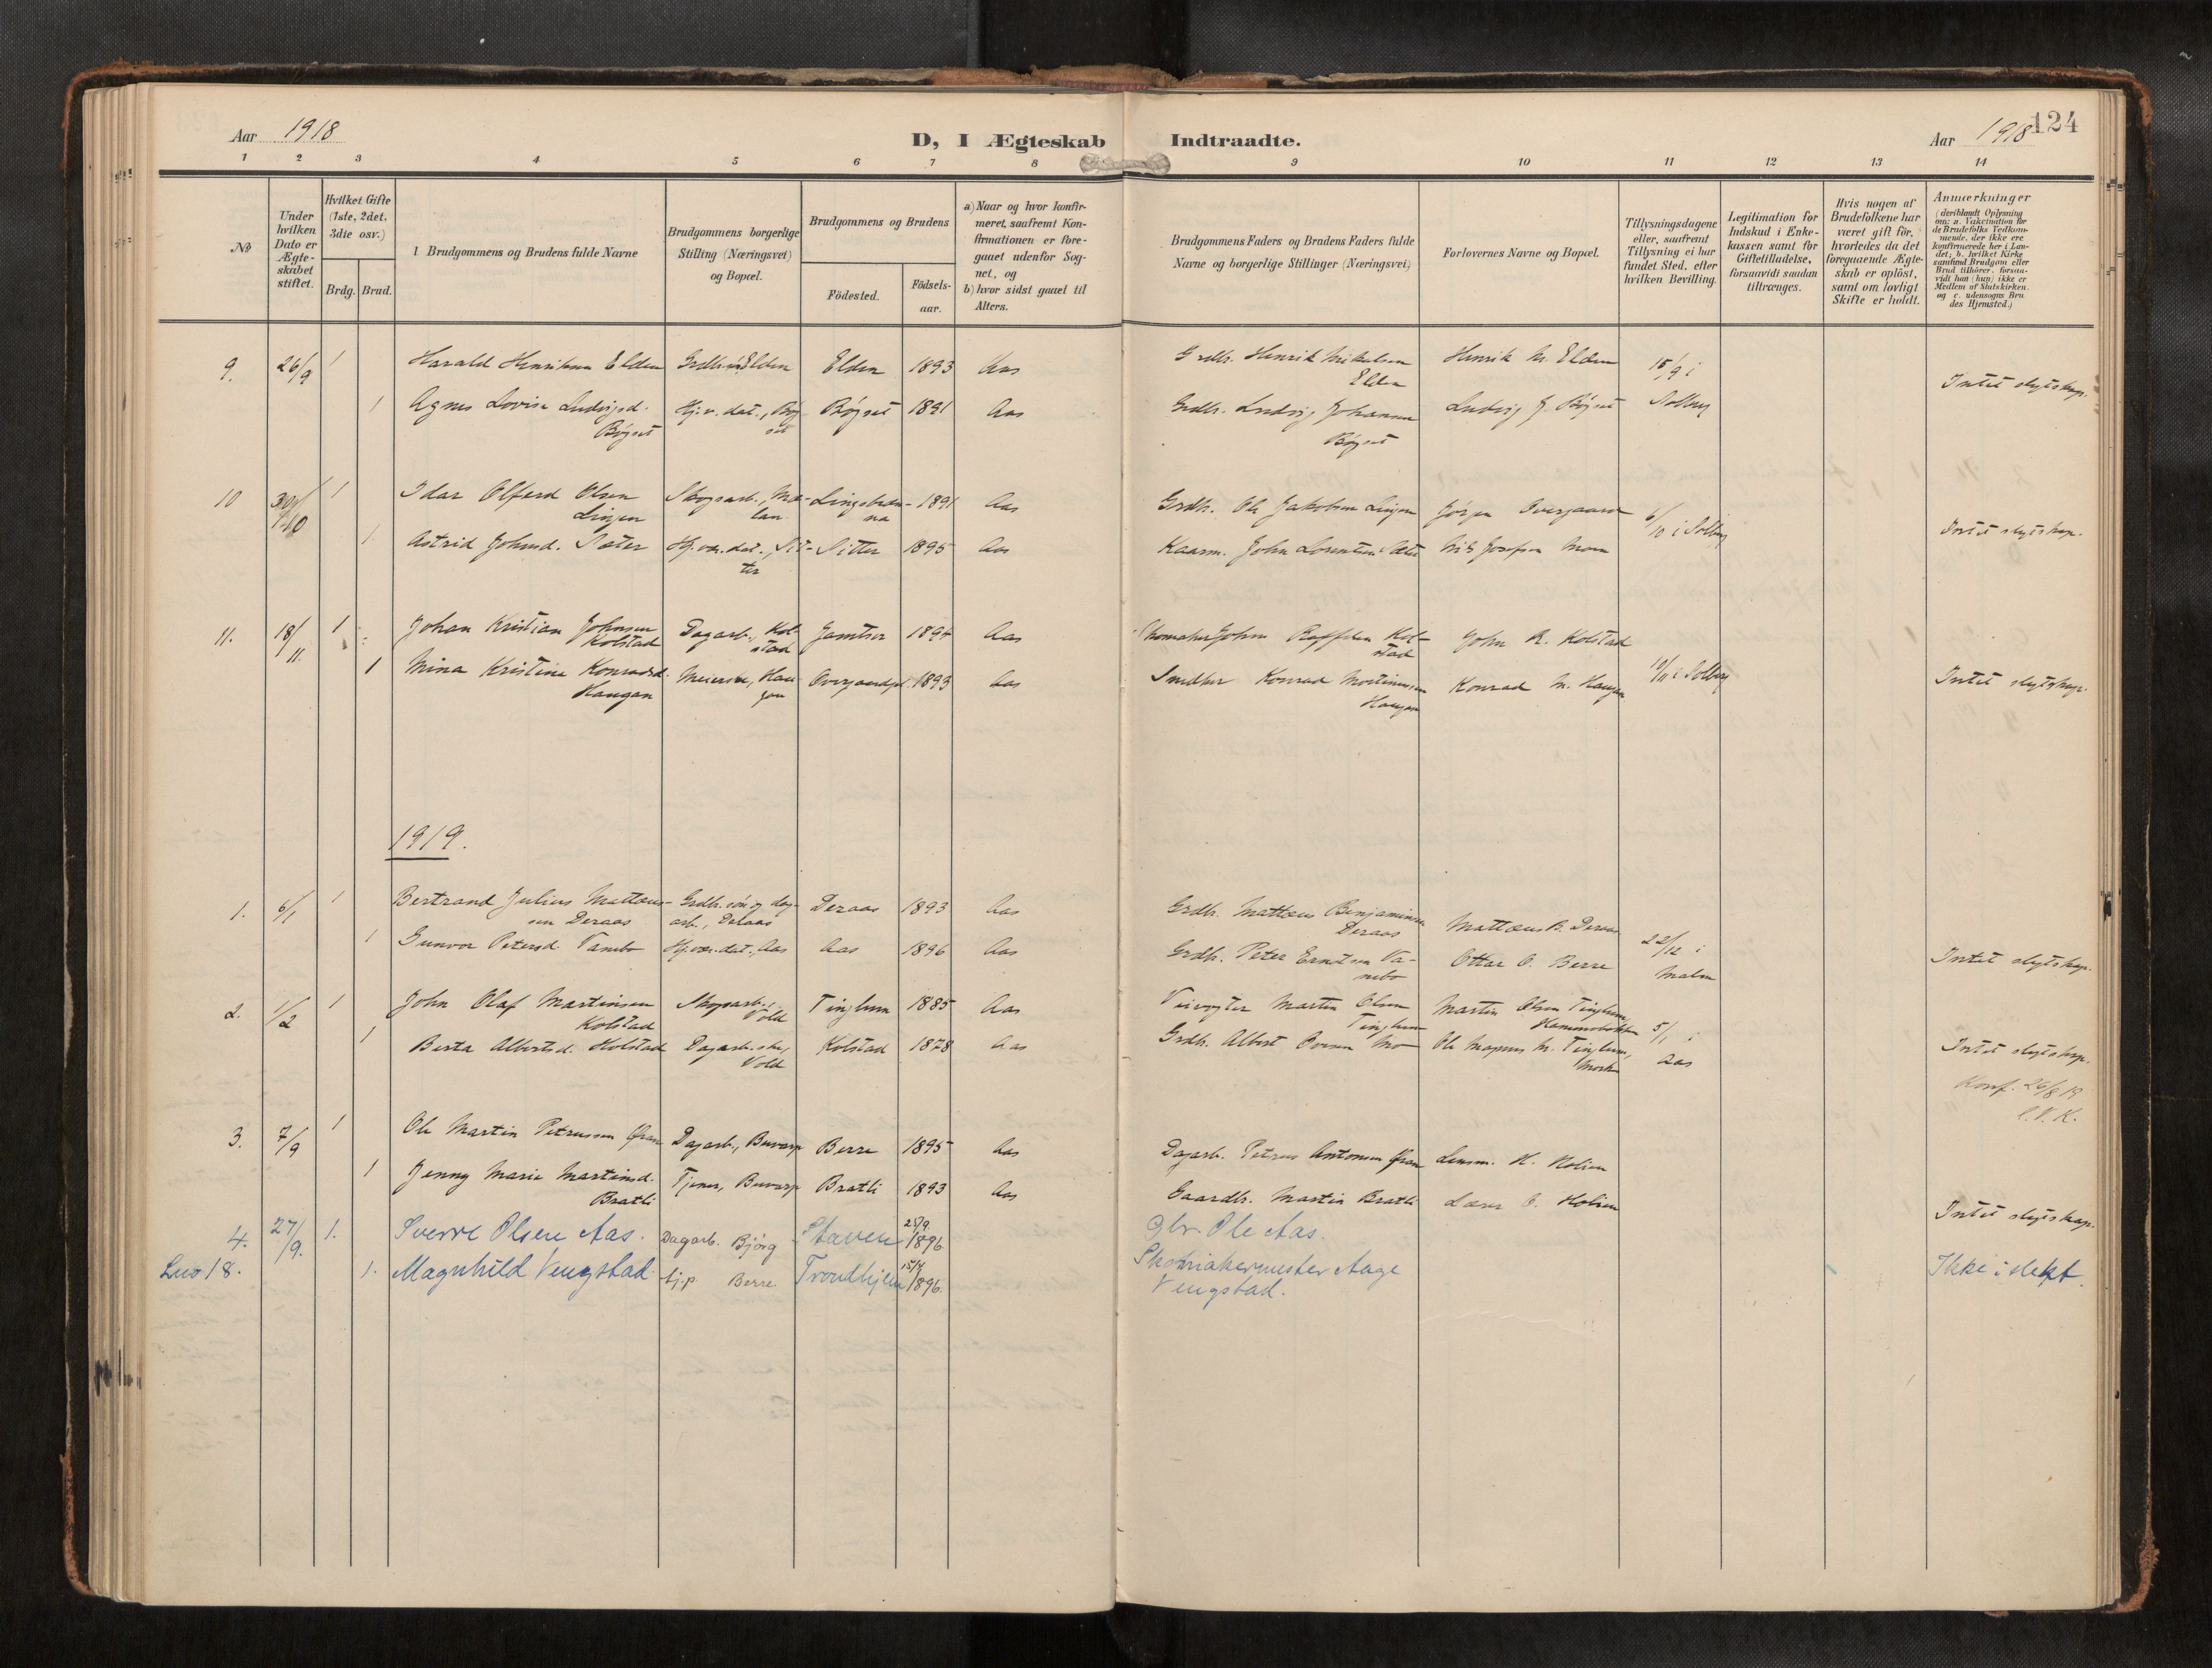 Aar 1918
D, I Ægteskab Indtraadte.
124
Aar 1918
1 2 3 4 5 6 7 8 9 10 11 12 13 14
No
Under hvilken Dato er Ægteskabet stiftet.
Hvilket Gifte (1ste, 2det, 3die osv.)
Brdg. Brud.
Brudgommens og Brudens fulde Navne
Brudgommens borgerlige Stilling (Næringsvei) og Bopæl.
Brudgommens og Brudens
Födested.
Födselsaar.
a) Naar og hvor konfirmeret, saafremt Konfirmationen er foregaaet udenfor Sognet, og
b) hvor sidst gaaet til Alters.
Brudgommens Faders og Brudens Faders fulde Navne og borgerlige Stillinger (Næringsvei)
Forlovernes Navne og Bopæl.
Tillysningsdagene eller, saafremt Tillysning ei har fundet Sted, efter hvilken Bevilling.
Legitimation for Indskud i Enkekassen samt for Giftetilladelse, forsaavidt saadan tiltrænges.
Hvis nogen af Brudefolkene har været gift för, hvorledes da det foregaaende Ægteskab er oplöst, samt om lovligt Skifte er holdt.
Anmærkninger
(deriblandt Oplysning om: a. Vakcination for de Brudefolks Vedkommende, der ikke ere konfirmerede her i Landet; b. hvilket Kirkesamfund Brudgom eller Brud tilhörer, forsaavidt han (hun) ikke er Medlem af Statskirken, og c. udensogns Brudes Hjemsted.)
9. 26/9 1 Harald Henriksen Elden Elden Elden 1893 Aas Grdbr. Henrik Mikalsen Elden Henrik M. Elden 15/9 i
1 Agnes Lovise Ludvigsd. Bøgset Hj.v. dat., Bøgset Bøgset 1891 Aas Grdbr. Ludvig Johansen Bøgset Ludvig J. Bøgset Solberg Intet slegtskap.
10 30/10 1 Idar Olferd Olsen Lingen Skogsarb., 1891 Aas Grdbr. Ole Jakobsen Lingen Jørgen Overgaard 6/10 i Solberg
1. Astrid Johnsd. Sæter Hj.vær.dat., Sitter Sitter 1895 Aas Kaarm. John Lorentsen Sæter Nils Josefsen Moen Intet slegtskap.
11. 18/11. 1 Johan Kristian Johnsen Kolstad Dagarb., Kolstad 1894 Aas Skomaker John Kolstad John R. Kolstad
1 Mina Kristine Konradsd. Haugan Meierske, Haugan Overgaardspl. 1893 Aas Snedker Konrad Mortinussen Haugan Konrad M. Haugan 10/11 i Solberg Intet slegtskap.
1919.
1. 6/1 1 Bertrand Julius Mattæussen Deraas Grdbr. søn og dagarb., Deraas Deraas 1893 Aas Grdbr. Mattæus Benjaminsen Deraas Mattæus B. Deraas 22/12 i
1 Gunvor Petersd. Vanebo Hj.vær.dat., Aas Aas 1896 Aas Grdbr. Peter Erntsen Vanebo Ottar O. Berre Malm Intet slegtskap.
2. 1/2 1 John Olaf Martinsen Kolstad Skogsarb., Vold Tinglum 1885 Aas Veivogter Martin Olsen Tinglum Martin Olsen Tinglum, 5/1 i
1 Berta Albertsd. Kolstad Dagarb.ske, Vold Kolstad 1878 Aas Grdbr. Albert Ovesen Mo Ole Magnus M. Tinglum, Aas Intet slegtskap.
Konf. 26/8 19
3. 7/9 1 Ole Martin Petrussen Dagarb., Buvarp Berre 1895 Aas Dagarb. Petrus Antonsen Lensm. H. Holien
1 Jenny Marie Martinsd. Bratli Tjener, Buvarp Bratli 1893 Aas Gaardbr. Martin Bratli Lærer O. Holien Intet slegtskap.
4. 27/9. 1. Sverre Olsen Aas. Dagarb. Bjørg Staven 25/9 1896 Gbr. Ole Aas.
18. 1. Magnhild Vengstad Tj.p. Berre Trondhjem 15/4 1896. Skomakermester Aage Vengstad. Ikke i slekt.